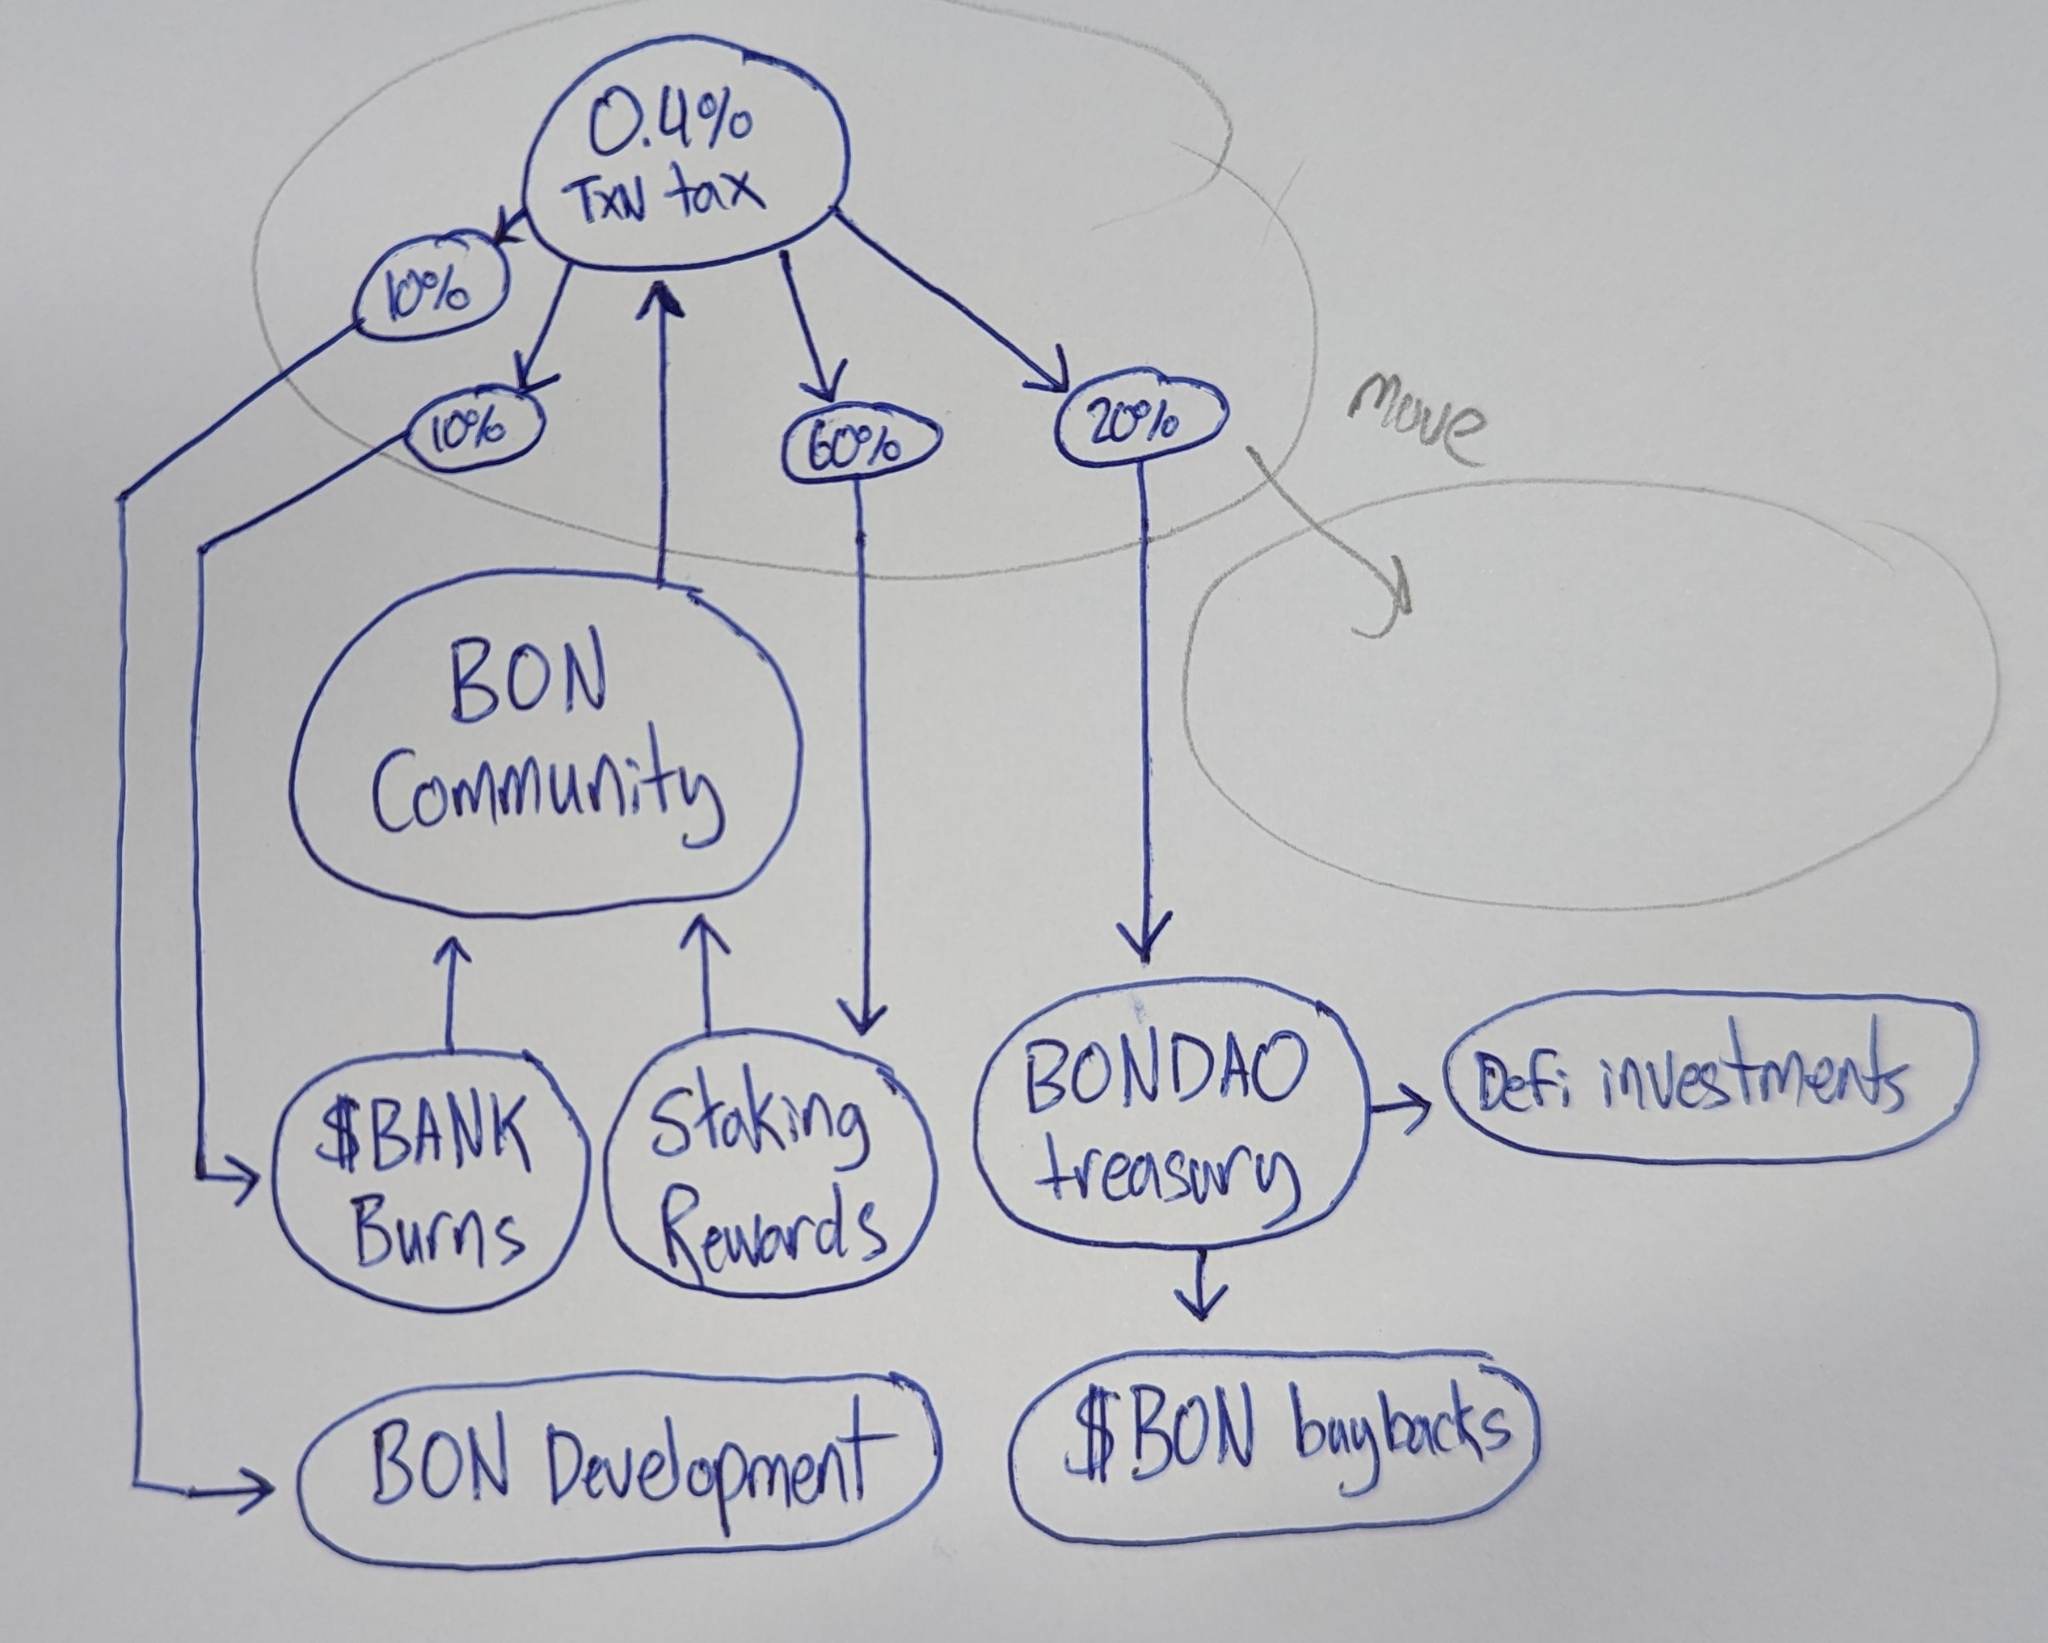 0.4%
TXN tax
10%
10%
60%
20%
move
BON
Community
$BANK
Burns
Staking
Rewards
BONDAO
treasury
Defi investments
BON Development
$BON buybacks